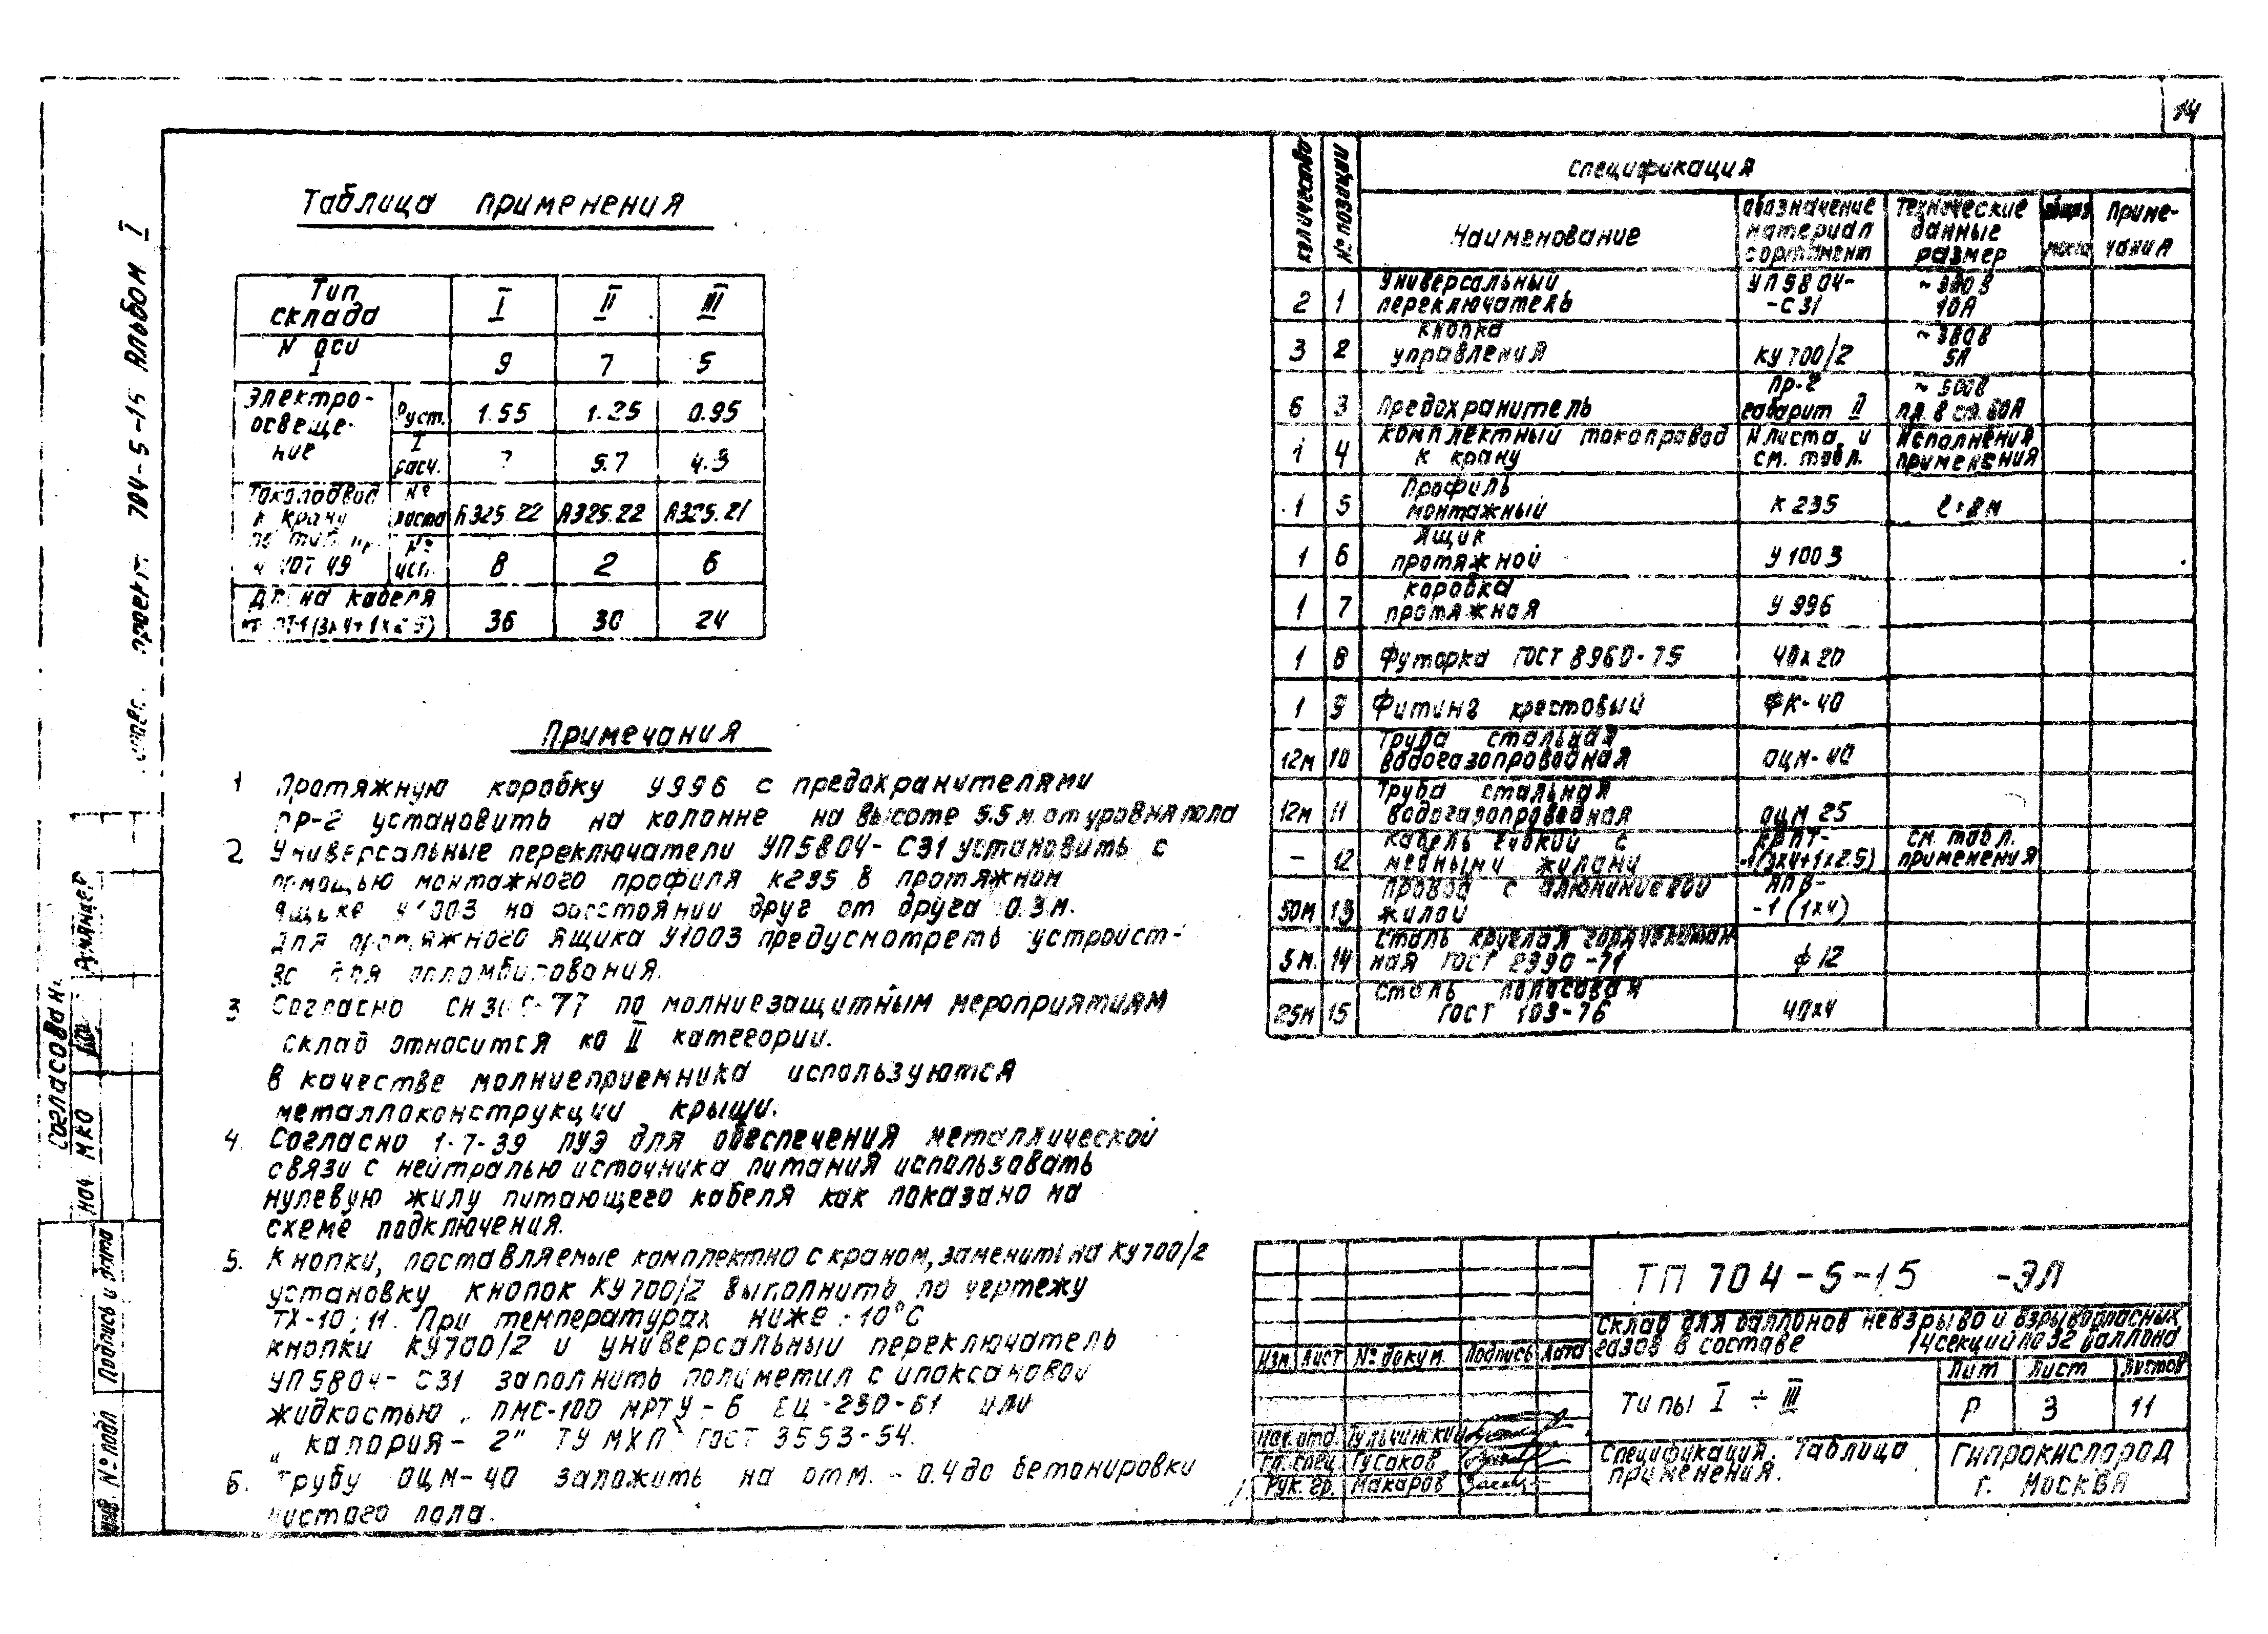 14
Таблица применения
Тип склада I II III
N оси 9 7 5
Электро-освещение Руст. 1.55 1.25 0.95
I расч. 7 5.7 4.3
Токоподвод к крану № листа А325.22 А325.22 А325.21
4.407 49 № исп. 8 2 6
Длина кабеля КРПТ-1(3х4+1х2.5) 36 30 24
Примечания
1 Протяжную коробку У996 с предохранителями
ПР-2 установить на колонне на высоте 5.5 м от уровня пола
2 Универсальные переключатели УП5804-С31 установить с
помощью монтажного профиля К235 в протяжном
ящике У1003 на расстоянии друг от друга 0.3 м.
Для протяжного ящика У1003 предусмотреть устройст-
во для опломбирования.
3 Согласно СН 305-77 по молниезащитным мероприятиям
склад относится ко II категории.
В качестве молниеприемника используются
металлоконструкции крыши.
4. Согласно 1-7-39 ПУЭ для обеспечения металлической
связи с нейтралью источника питания использовать
нулевую жилу питающего кабеля как показано на
схеме подключения.
5. Кнопки, поставляемые комплектно с краном, заменить на КУ700/2
установку кнопок КУ700/2 выполнить по чертежу
ТХ-10; 11. При температурах ниже -10°С
кнопки КУ700/2 и универсальный переключатель
УП5804-С31 заполнить полиметилсилоксановой
жидкостью ПМС-100 МРТУ-6 ЕЦ-230-61 или
„Калория-2" ТУ МХП ГОСТ 3553-54.
6. Трубу ОЦМ-40 заложить на отм. -0.4 до бетонировки
чистого пола.
Количество № позиции Спецификация
Наименование Обозначение материал сортамент Технические данные размер Общая масса Примечания
2 1 Универсальный переключатель УП5804-С31 ~380В 10А
3 2 Кнопка управления КУ700/2 ~380В 5А
6 3 Предохранитель Пр-2 габарит II ~500В пл. вст. 60А
1 4 Комплектный токопровод к крану N листа и см. табл. Исполнения применения
1 5 Профиль монтажный К235 ℓ=2м
1 6 Ящик протяжной У1003
1 7 Коробка протяжная У996
1 8 Футорка ГОСТ 8960-75 40х20
1 9 Фитинг крестовый ФК-40
12м 10 Труба стальная водогазопроводная ОЦМ-40
12м 11 Труба стальная водогазопроводная ОЦМ 25
- 12 Кабель гибкий с медными жилами КРПТ-1(3х4+1х2.5) см. табл. применения
50м 13 Провод с алюминиевой жилой АПВ-1(1х4)
5м. 14 Сталь круглая горячекатанная ГОСТ 2590-71 ф12
25м 15 Сталь полосовая ГОСТ 103-76 40х4
ТП 704-5-15 -ЭЛ
Склад для баллонов невзрыво и взрывоопасных
газов в составе 14 секций по 32 баллона
Изм Лист № докум. Подпись Дата
Типы I ÷ III
Лит Лист Листов
Р 3 11
Нач. отд. Гульчинский
Гл. спец. Гусаков
Рук. гр. Макаров
Спецификация. Таблица
применения.
Гипрокислород
г. Москва
проект 704-5-15 Альбом I
Согласован:
Нач МКО
Подпись и дата
Инв № подл